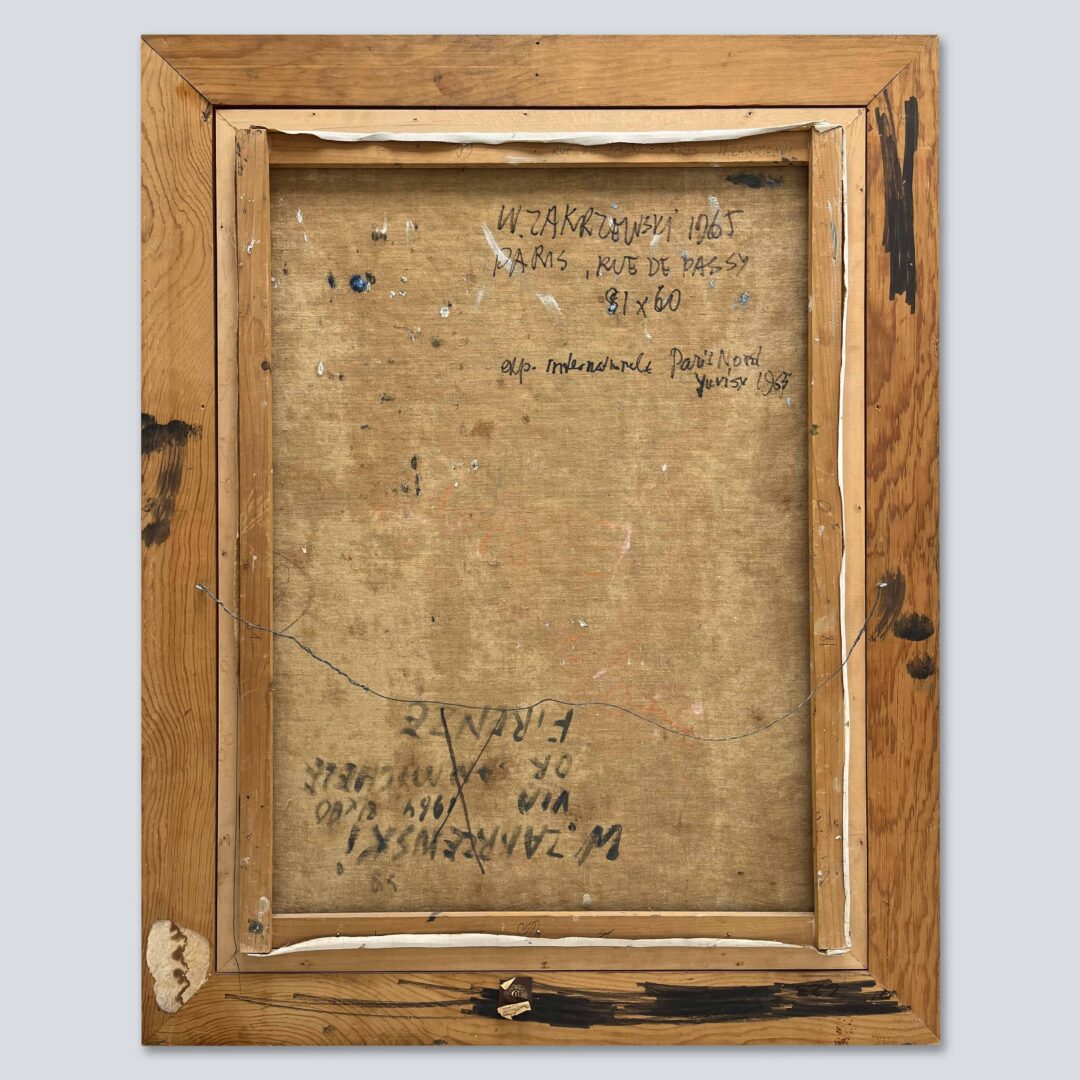 W. ZAKRZEWSKI
W. ZAKRZEWSKI 1965
PARIS, RUE DE PASSY
81 x 60
exp. internationale Paris Nord
1965
W. ZAKRZEWSKI
VIN 1964 81x60
OR SAN MICHELE
FIRENZE